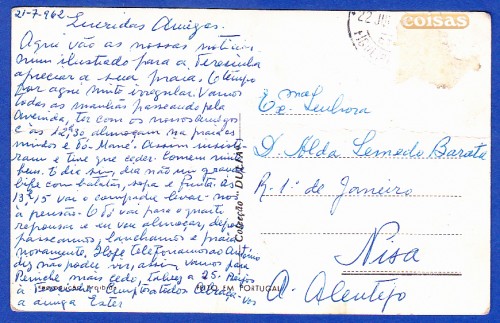 21-7-962
Queridas Amigas.
Aqui vão as nossas notícias
num ilustrado para a Teresinha
apreciar a sua praia. O tempo
por aqui muito irregular. Vamos
todas as manhãs passeando pela
Avenida, ter com os nossos amigos
e às 12,30 almoçam na praia os
miúdos e Zé-Manel. Assim insisti
ram e tive que ceder. Comem muito
bem. E dia sim, dia não um grande
bife com batatas, sopa e fruta. Às
13,15 vai o compadre levar-nos
à pensão. O Zé vai para o quarto
repousar e eu vou almoçar, depois
passeamos, lanchamos e praia
novamente. Hoje telefonamos ao António
diz não poder vir, vamos para
Peniche mais cedo, talvez a 25. Beijos
à Teresinha Cumprimentos Abraça-vos
a amiga Ester
22 JUL
coisas
Ex.ma Senhora
D. Alda Semedo Barata
R. 1º de Janeiro
Nisa
A. Alentejo
Colecção DULIA
REPRODUÇÃO PROIBIDA
FEITO EM PORTUGAL